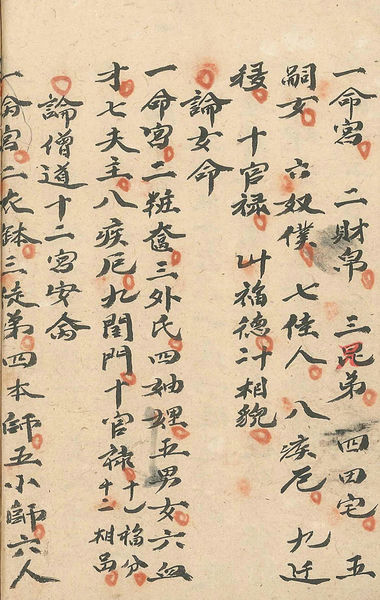 一命宮 二財帛 三昆弟 四田宅 五
嗣女 六奴僕 七佳人 八疾厄 九迁
移 十官禄 十一福德十二相貌
論女命
一命宮二粧奩三外氏四妯娌五男女六血
才七夫主八疾厄九閨門十官禄十一福分十二相皃
論僧道十二宮安命
一命宮二衣鉢三徒弟四本師五小師六人